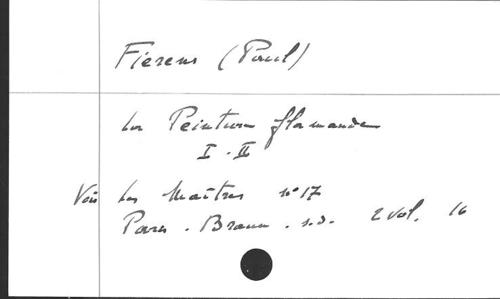 Fierens (Paul)
La Peinture flamande
I - II
Voir Les Maîtres n° 17
Paris. Braun. s.d. 2 vol. 16